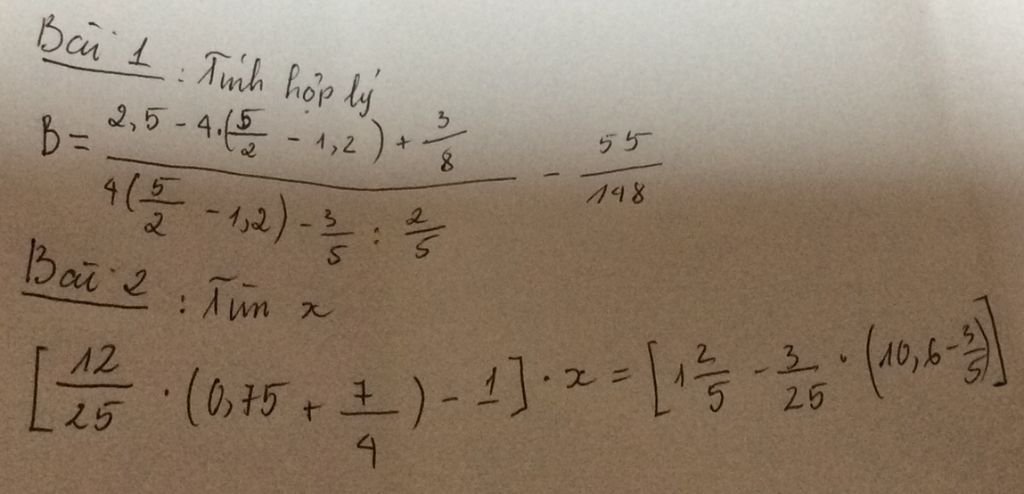 Bài 1 : Tính hợp lý
B = \frac{2,5 - 4.(\frac{5}{2} - 1,2) + \frac{3}{8}}{4(\frac{5}{2} - 1,2) - \frac{3}{5} : \frac{2}{5}} - \frac{55}{148}
Bài 2 : Tìm x
[\frac{12}{25} . (0,75 + \frac{7}{4}) - 1] . x = [1\frac{2}{5} - \frac{3}{25} . (10,6 - \frac{3}{5})]